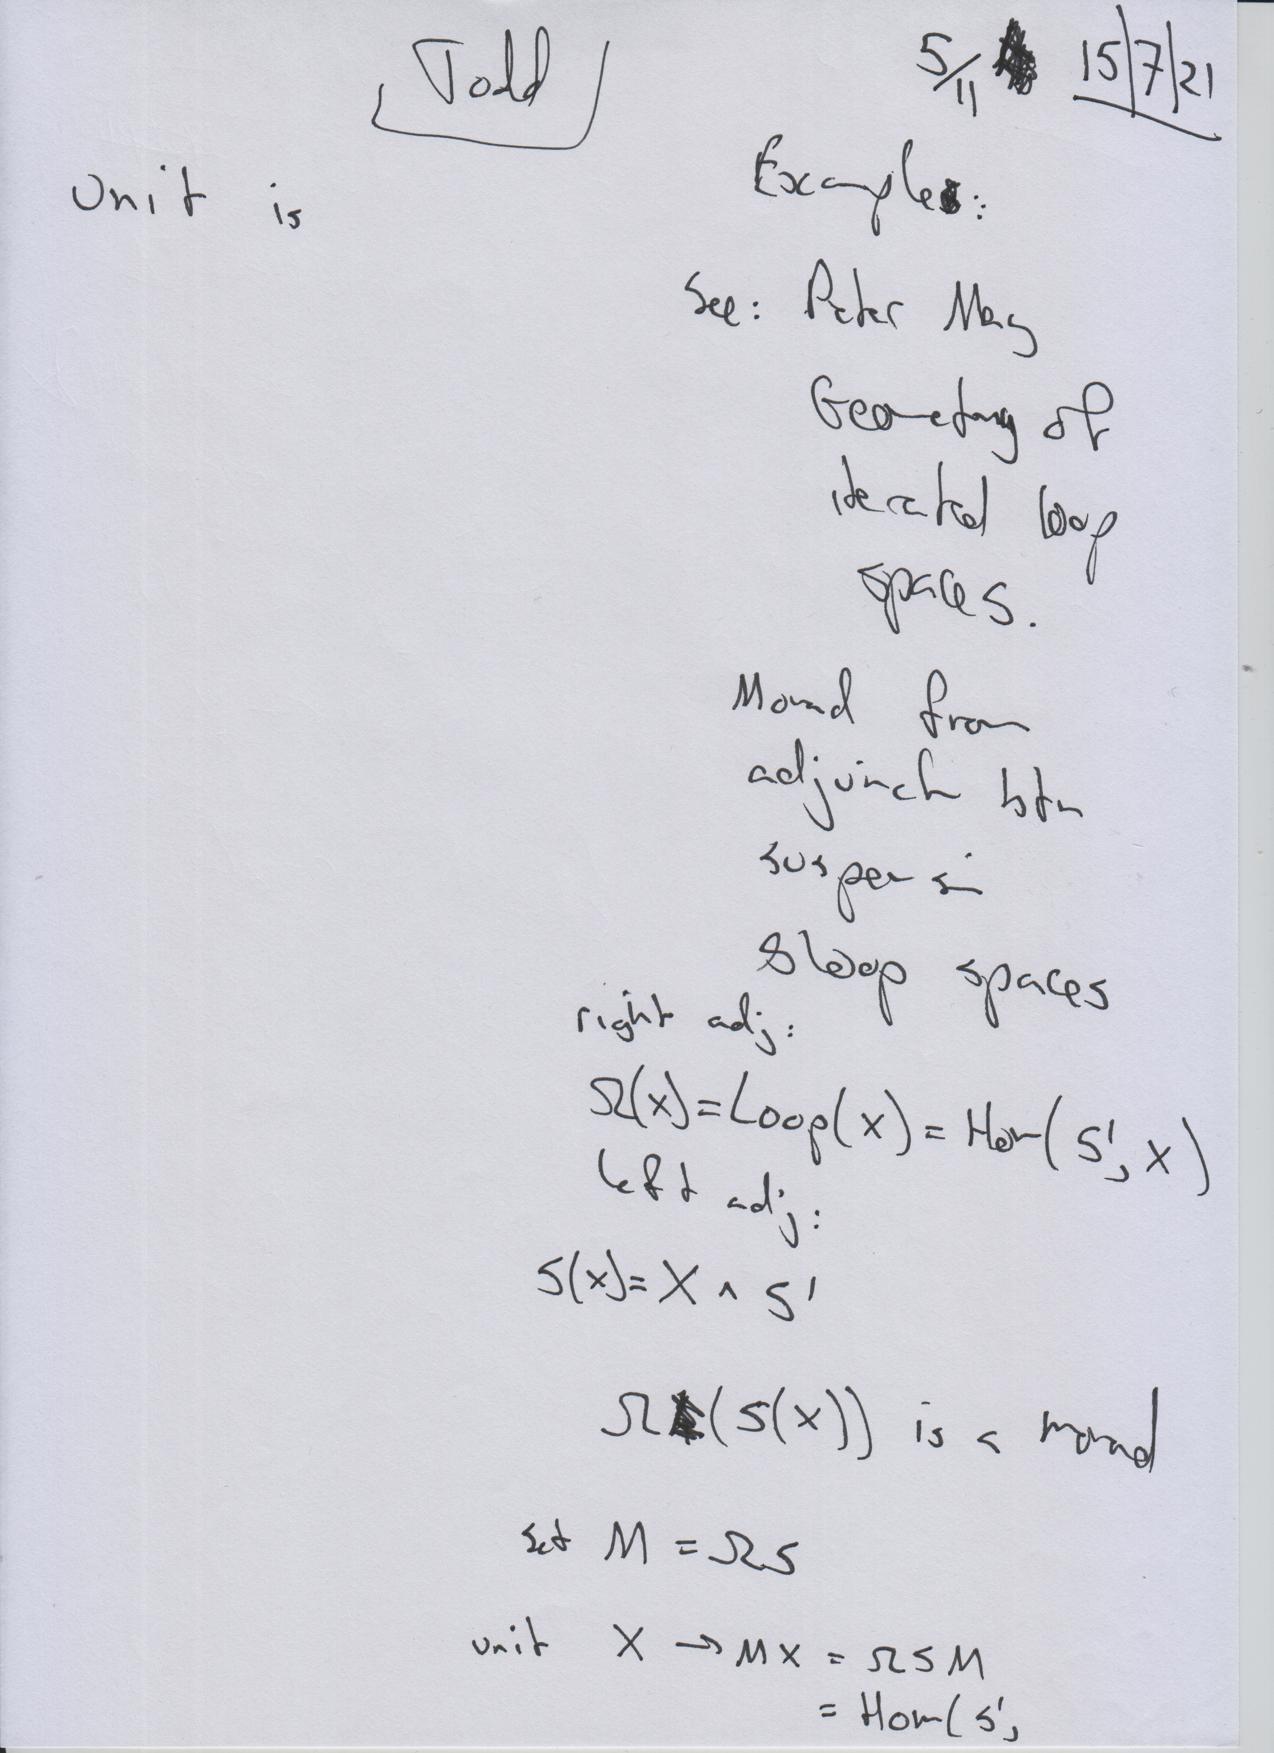 Todd
5/11 15/7/21
Unit is
Example:
See: Peter May
Geometry of
iterated loop
spaces.
Monad from
adjunctn btn
suspensin
& loop spaces
right adj:
Ω(X) = Loop(X) = Hom(S¹, X)
left adj:
S(X) = X ∧ S¹
Ω(S(X)) is a monad
set M = ΩS
unit X → MX = ΩSM
= Hom(S¹,